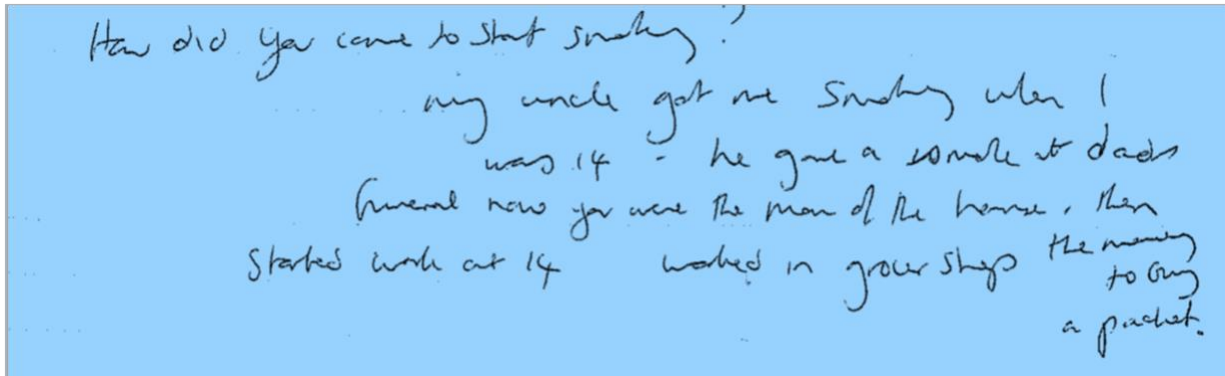 How did you come to start smoking?
my uncle got me smoking when I
was 14 - he gave a smoke at dads
funeral now you were the man of the house. then
started work at 14 worked in grocer shops the money
to buy
a packet.